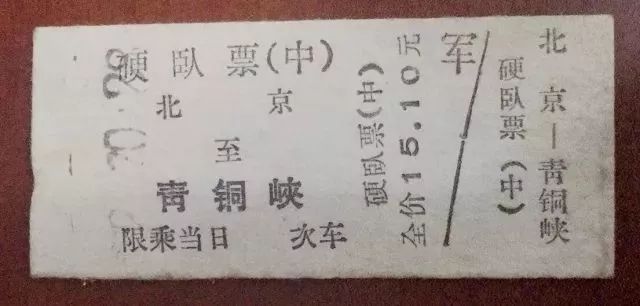 硬臥票(中)
北京
至
青铜峡
限乘当日 次车
硬臥票(中)
全价15.10元
军
北京—青铜峡
硬臥票(中)